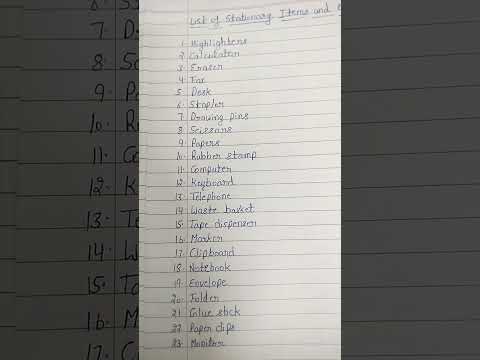 List of Stationary Items and
1. Highlighters
2. Calculator
3. Eraser
4. Fax
5. Desk
6. Stapler
7. Drawing pins
8. Scissors
9. Papers
10. Rubber stamp
11. Computer
12. Keyboard
13. Telephone
14. Waste basket
15. Tape dispenser
16. Marker
17. Clipboard
18. Notebook
19. Envelope
20. Folder
21. Glue stick
22. Paper clips
23. Monitor